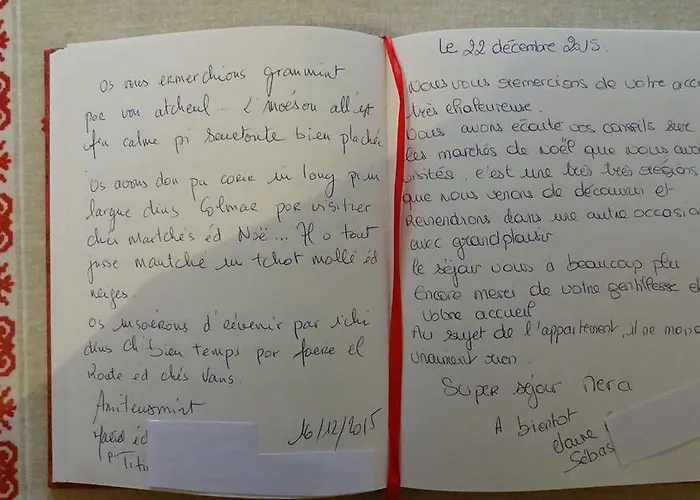 Os vous ermerchions grammint
por vou atcheul... L'moéson all'est
fin calme pi seurtoute bien plachée
Os avons don pu corir in long pi in
largue dins Colmar por visitier
chés martchés éd Noë... Il o tout
jusse mantché un tchot mollé éd
neiges...
Os insoérons d'érvenir par ichi
dins ch'bien temps por foere el
Route ed chés Vans.
Amiteusmint
éd
P'Titi
16/12/2015
Le 22 décembre 2015.
Nous vous remercions de votre accu
très chaleureuse.
Nous avons écouté vos conseils sur
les marchés de noël que nous avon
visités, c'est une très très régions
que nous venons de découvrir et
Reviendrons dans une autre occasion
avec grand plaisir
le séjour nous a beaucoup plu
Encore merci de votre gentillesse et
votre accueil
Au sujet de l'appartement, il ne manq
vraiment rien.
Super séjour Merci
A bientot
Claire
Sébas